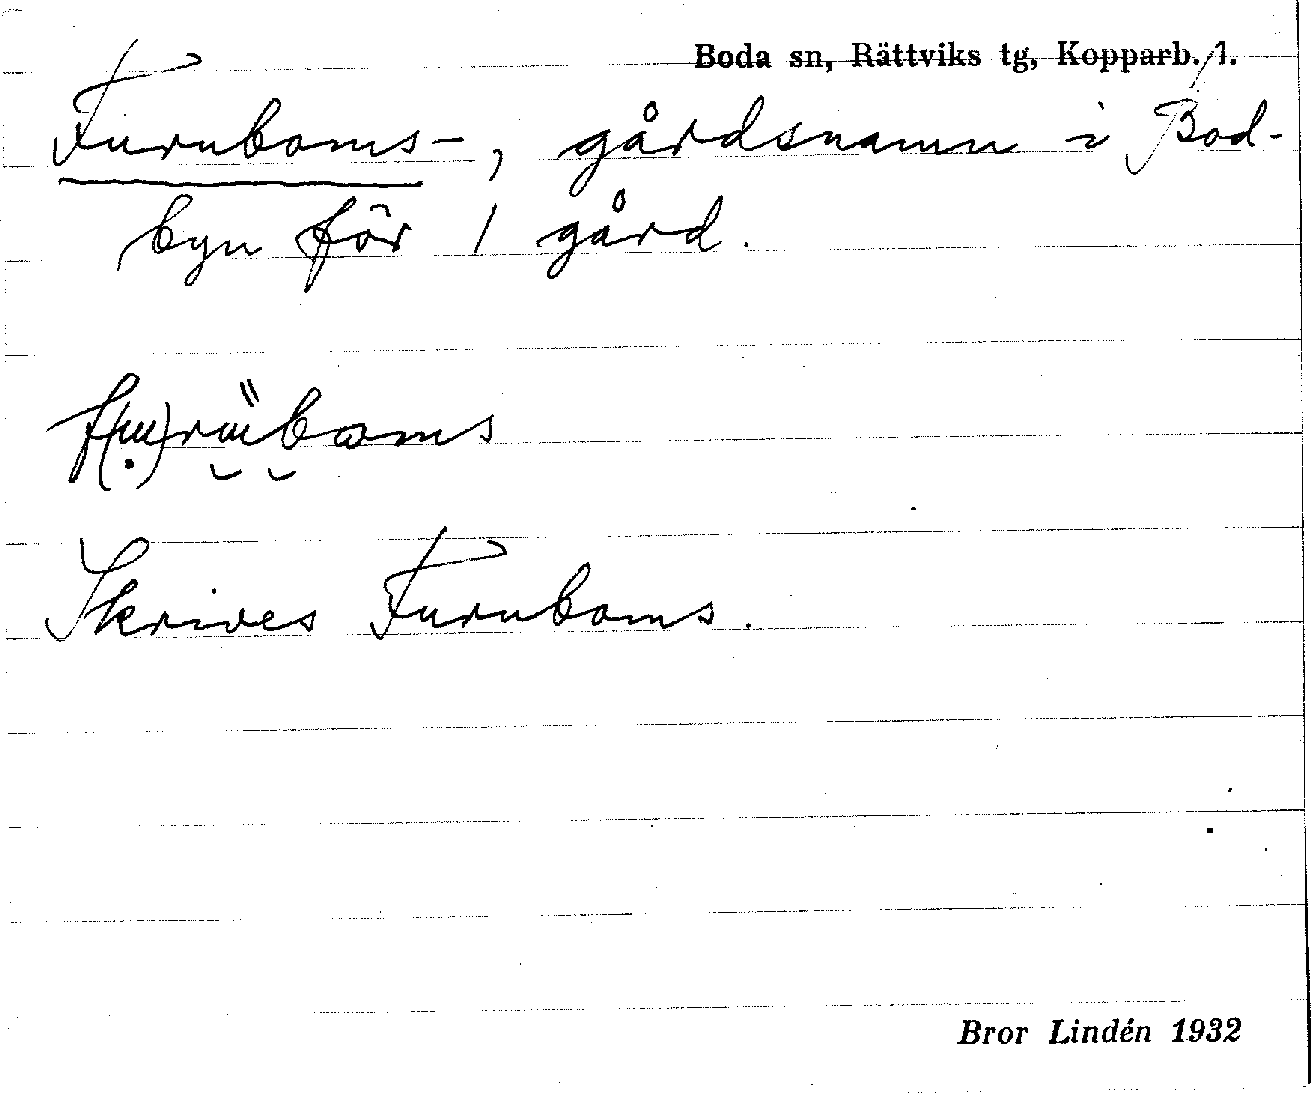 Boda sn, Rättviks tg, Kopparb. l.
Furuboms-, gårdsnamn i Bod-
byn för 1 gård.
Skrives Furuboms.
Bror Lindén 1932